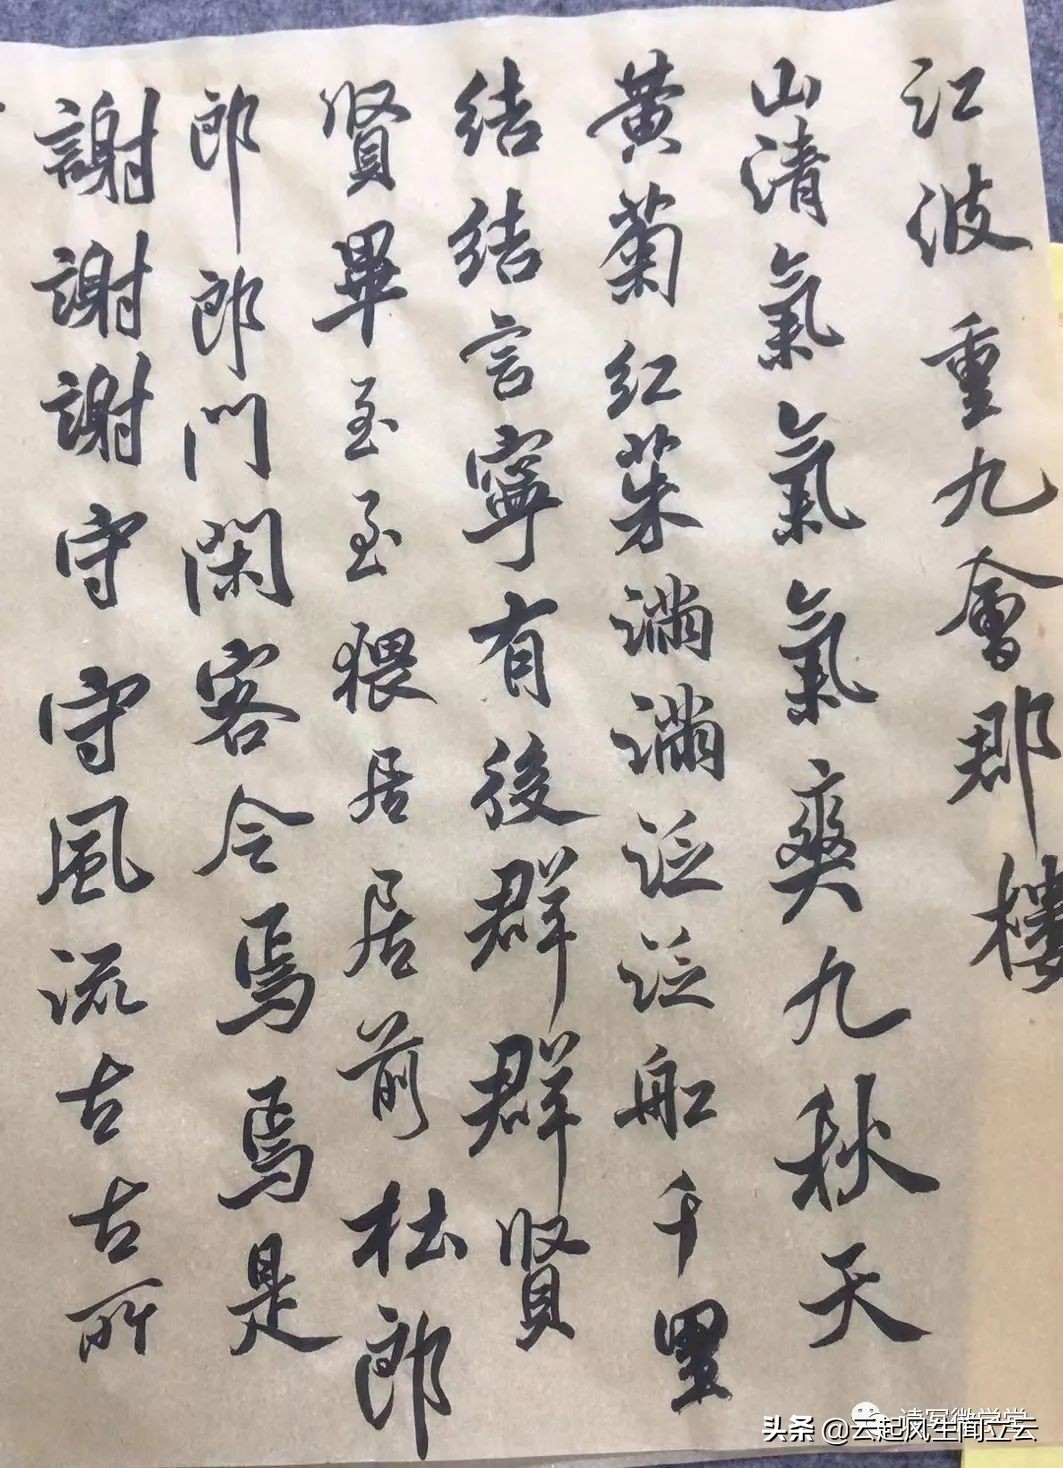 江波重九會郡樓
山清氣氣氣爽九秋天
黃菊紅茱滿滿泛泛船千里
結結言寧有後群群賢
賢畢至至猥居居前杜郎
郎郎門閑客今焉焉是
謝謝謝守守風流古古所
读写微学堂
头条 @云起风生闻立云